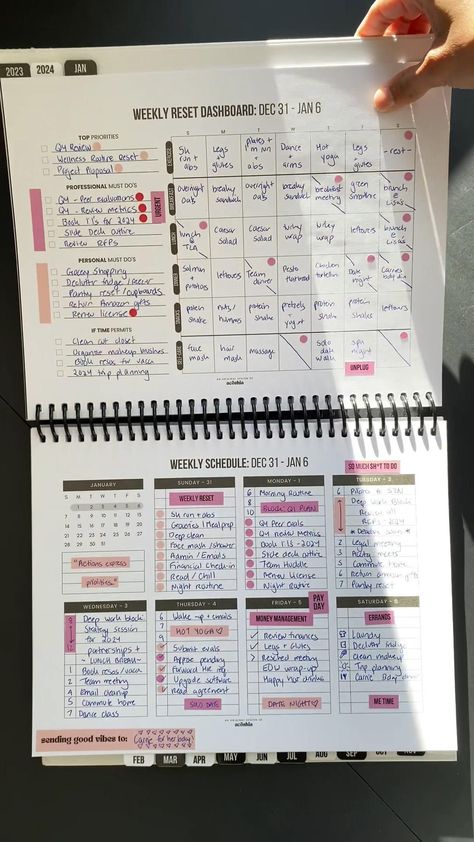 2023 2024 JAN
WEEKLY RESET DASHBOARD: DEC 31 - JAN 6
TOP PRIORITIES
Q4 Review
Wellness Routine Reset
Project Proposal
PROFESSIONAL MUST DO'S
Q4 - Peer evaluations
Q4 - Review metrics
Book TTs for 2024
Slide Deck outline
Review RFPs
URGENT
PERSONAL MUST DO'S
Grocery Shopping
Declutter fridge /
Pantry reset /cupboards
Return Amazon gifts
Renew license
IF TIME PERMITS
Clean out closet
Organize makeup
Book resos for vaca
2024 trip planning
S M T W T F S
EXERCISE
5k run + abs
Legs glutes
pilates + 1m run + abs
Dance + arms
Hot yoga
Legs + glutes
-rest-
BREAKFAST
overnight oats
breaky sandwich
overnight oats
breaky sandwich
breakfast meeting
green smoothie
brunch @ Lisa's
LUNCH
lunch @
Caesar salad
Caesar salad
wrap
wrap
leftovers
brunch @ Lisa's
DINNER
Salmon + potatoes
leftovers
Team dinner
Pesto
Chicken
Date night
Carries bday din
SNACKS
protein shake
nuts / hummus
protein shake
pretzels + yogurt
protein shake
protein shake
leftovers
SELF-CARE
face mask
hair mask
massage
solo date walk
spa night
UNPLUG
AN ORIGINAL DESIGN OF
WEEKLY SCHEDULE: DEC 31 - JAN 6
SO MUCH SH*T TO DO
JANUARY
S M T W T F S
1 2 3 4 5 6
7 8 9 10 11 12 13
14 15 16 17 18 19 20
21 22 23 24 25 26 27
28 29 30 31
"Actions express
priorities"
SUNDAY - 31
WEEKLY RESET
5k run + abs
Groceries / Meal prep
Deep clean
Face mask /shower
Admin / Emails
Financial Check-in
Read / Chill
Night routine
MONDAY - 1
6 Morning Routine
8 BLOCK: Q1 PLAN
10 Q4 Peer evals
Q4 review metrics
Book TTs - 2024
Slide deck outline
Team Huddle
Renew License
Night Routine
PAY DAY
TUESDAY - 2
6 Pilates +
Deep Work Block
RFPS - 2024
2 Legal meeting
5 Commute home
6 Return amazon gifts
7 Pantry reset
WEDNESDAY - 3
Deep work block
Strategy session
for 2024
partnerships +
~ LUNCH BREAK ~
1 Book resos / vaca
2 Team meeting
4 Email cleanup
5 Commute home
7 Dance class
THURSDAY - 4
6 Wake up + emails
7 HOT YOGA
9
Submit evals
Approve pending
Forward the
Upgrade software
Read agreement
SOLO DATE
FRIDAY - 5
MONEY MANAGEMENT
Review finances
Legs + Glutes
Resched meeting
EOW wrap-up
Happy hour drinks
DATE NIGHT
SATURDAY - 6
ERRANDS
Laundry
Declutter fridge
Clean makeup
Trip planning
Carrie Bday dinner
ME TIME
sending good vibes to: Carrie for her bday!
AN ORIGINAL DESIGN OF
FEB MAR APR MAY JUN JUL AUG SEP OCT NOV